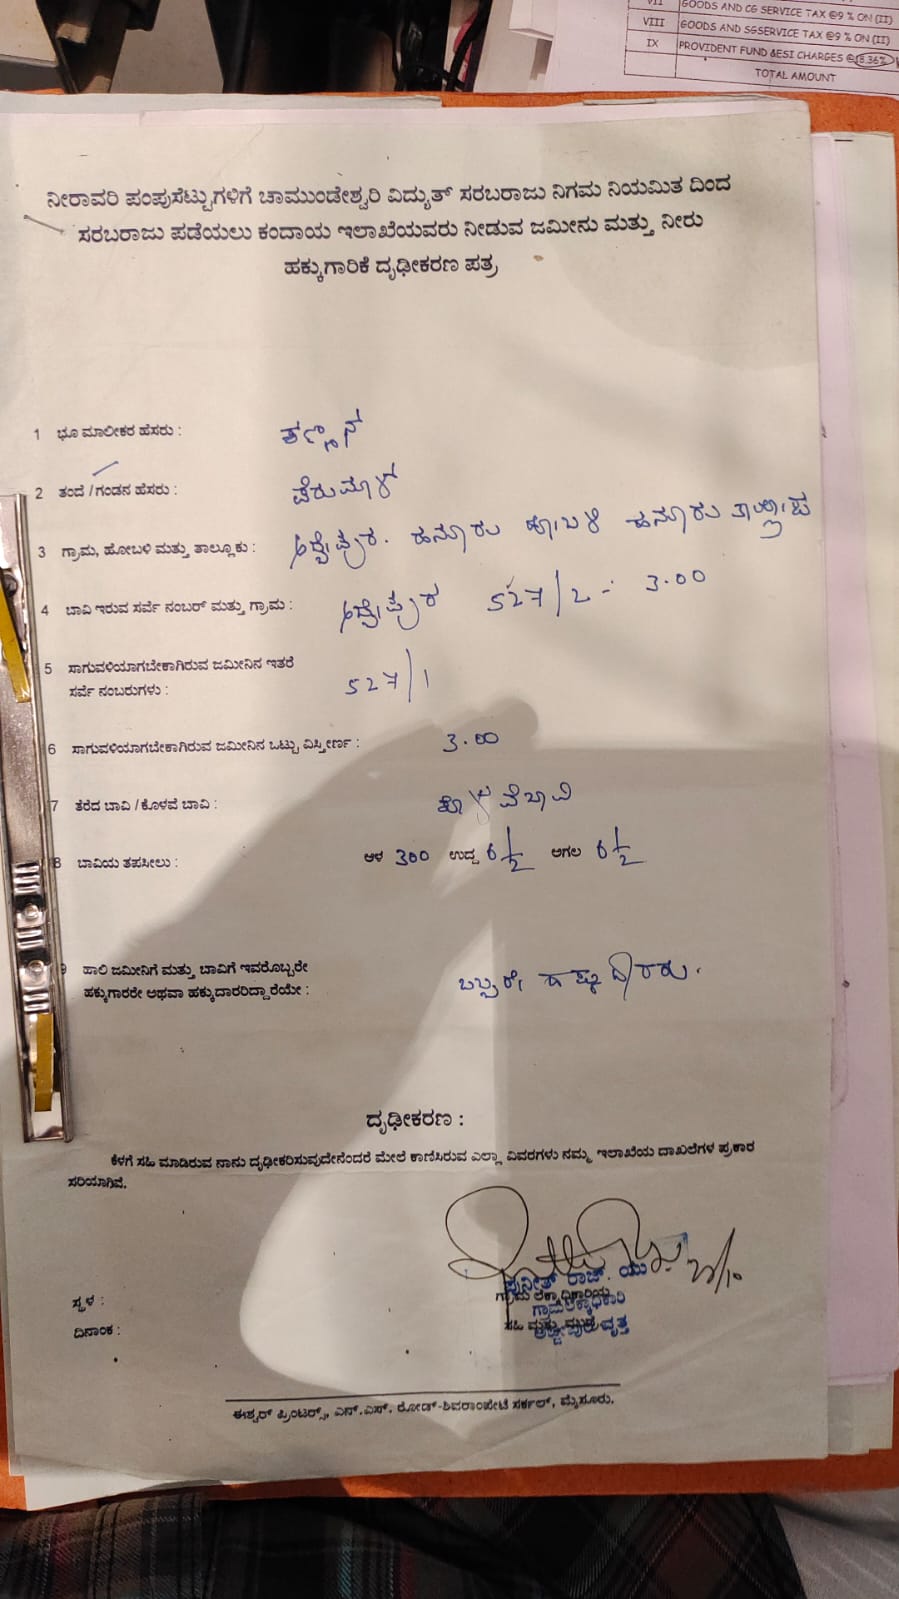 VII GOODS AND CG SERVICE TAX @9 % ON (II)
VIII GOODS AND SGSERVICE TAX @9 % ON (II)
IX PROVIDENT FUND &ESI CHARGES @
TOTAL AMOUNT
ನೀರಾವರಿ ಪಂಪುಸೆಟ್ಟುಗಳಿಗೆ ಚಾಮುಂಡೇಶ್ವರಿ ವಿದ್ಯುತ್ ಸರಬರಾಜು ನಿಗಮ ನಿಯಮಿತ ದಿಂದ
ಸರಬರಾಜು ಪಡೆಯಲು ಕಂದಾಯ ಇಲಾಖೆಯವರು ನೀಡುವ ಜಮೀನು ಮತ್ತು ನೀರು
ಹಕ್ಕುಗಾರಿಕೆ ದೃಢೀಕರಣ ಪತ್ರ
1 ಭೂ ಮಾಲೀಕರ ಹೆಸರು :
2 ತಂದೆ / ಗಂಡನ ಹೆಸರು : ಪೆರುಮಾಳ್
3 ಗ್ರಾಮ, ಹೋಬಳಿ ಮತ್ತು ತಾಲ್ಲೂಕು : ಹನೂರು ಹೋಬಳಿ ಹನೂರು
4 ಬಾವಿ ಇರುವ ಸರ್ವೆ ನಂಬರ್ ಮತ್ತು ಗ್ರಾಮ : 527/2 - 3.00
5 ಸಾಗುವಳಿಯಾಗಬೇಕಾಗಿರುವ ಜಮೀನಿನ ಇತರೆ
ಸರ್ವೆ ನಂಬರುಗಳು : 527/1
6 ಸಾಗುವಳಿಯಾಗಬೇಕಾಗಿರುವ ಜಮೀನಿನ ಒಟ್ಟು ವಿಸ್ತೀರ್ಣ : 3.00
7 ತೆರೆದ ಬಾವಿ / ಕೊಳವೆ ಬಾವಿ : ಕೊಳವೆಬಾವಿ
8 ಬಾವಿಯ ತಪಸೀಲು : ಆಳ 300 ಉದ್ದ 6 1/2 ಅಗಲ 6 1/2
9 ಹಾಲಿ ಜಮೀನಿಗೆ ಮತ್ತು ಬಾವಿಗೆ ಇವರೊಬ್ಬರೇ
ಹಕ್ಕುಗಾರರೇ ಅಥವಾ ಹಕ್ಕುದಾರರಿದ್ದಾರೆಯೇ : ಒಬ್ಬರೇ ಹಕ್ಕುದಾರರು.
ದೃಢೀಕರಣ :
ಕೆಳಗೆ ಸಹಿ ಮಾಡಿರುವ ನಾನು ದೃಢೀಕರಿಸುವುದೇನೆಂದರೆ ಮೇಲೆ ಕಾಣಿಸಿರುವ ಎಲ್ಲಾ ವಿವರಗಳು ನಮ್ಮ ಇಲಾಖೆಯ ದಾಖಲೆಗಳ ಪ್ರಕಾರ
ಸರಿಯಾಗಿವೆ.
ಪುನೀತ್ ರಾಜ್. ಯು
ಸ್ಥಳ : ಗ್ರಾಮ ಲೆಕ್ಕಾಧಿಕಾರಿಯ
ಗ್ರಾಮಲೆಕ್ಕಾಧಿಕಾರಿ
ದಿನಾಂಕ : ಸಹಿ ಮತ್ತು ಮೊಹರು
ವೃತ್ತ
ಈಶ್ವರ್ ಪ್ರಿಂಟರ್ಸ್, ಎನ್.ಎಸ್. ರೋಡ್-ಶಿವರಾಂಪೇಟೆ ಸರ್ಕಲ್, ಮೈಸೂರು.